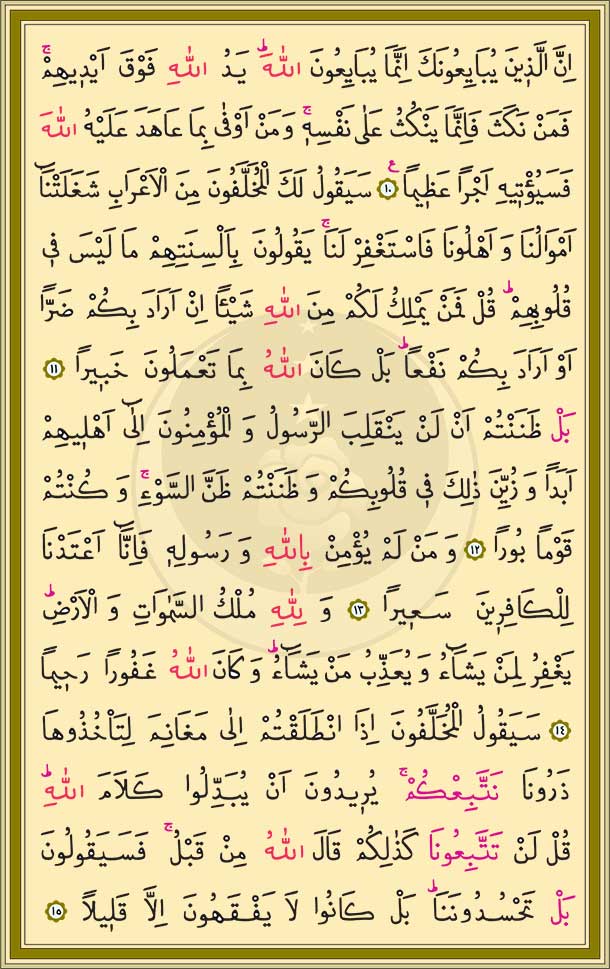 اِنَّ الَّذ۪ينَ يُبَايِعُونَكَ اِنَّمَا يُبَايِعُونَ اللّٰهَۜ يَدُ اللّٰهِ فَوْقَ اَيْد۪يهِمْۚ
فَمَنْ نَكَثَ فَاِنَّمَا يَنْكُثُ عَلٰى نَفْسِه۪ۚ وَمَنْ اَوْفٰى بِمَا عَاهَدَ عَلَيْهُ اللّٰهَ
فَسَيُؤْت۪يهِ اَجْرًا عَظ۪يمًاࣖ ﴿١٠﴾ سَيَقُولُ لَكَ الْمُخَلَّفُونَ مِنَ الْاَعْرَابِ شَغَلَتْنَٓا
اَمْوَالُنَا وَ اَهْلُونَا فَاسْتَغْفِرْ لَنَاۚ يَقُولُونَ بِاَلْسِنَتِهِمْ مَا لَيْسَ ف۪ي
قُلُوبِهِمْۜ قُلْ فَمَنْ يَمْلِكُ لَكُمْ مِنَ اللّٰهِ شَيْـًٔا اِنْ اَرَادَ بِكُمْ ضَرًّا
اَوْ اَرَادَ بِكُمْ نَفْعًاۜ بَلْ كَانَ اللّٰهُ بِمَا تَعْمَلُونَ خَب۪يرًا ﴿١١﴾
بَلْ ظَنَنْتُمْ اَنْ لَنْ يَنْقَلِبَ الرَّسُولُ وَ الْمُؤْمِنُونَ اِلٰٓى اَهْل۪يهِمْ
اَبَدًا وَ زُيِّنَ ذٰلِكَ ف۪ي قُلُوبِكُمْ وَ ظَنَنْتُمْ ظَنَّ السَّوْءِۚ وَ كُنْتُمْ
قَوْمًا بُورًا ﴿١٢﴾ وَ مَنْ لَمْ يُؤْمِنْ بِاللّٰهِ وَ رَسُولِه۪ فَاِنَّٓا اَعْتَدْنَا
لِلْكَافِر۪ينَ سَع۪يرًا ﴿١٣﴾ وَ لِلّٰهِ مُلْكُ السَّمٰوَاتِ وَ الْاَرْضِۜ
يَغْفِرُ لِمَنْ يَشَٓاءُ وَ يُعَذِّبُ مَنْ يَشَٓاءُۜ وَ كَانَ اللّٰهُ غَفُورًا رَح۪يمًا
﴿١٤﴾ سَيَقُولُ الْمُخَلَّفُونَ اِذَا انْطَلَقْتُمْ اِلٰى مَغَانِمَ لِتَأْخُذُوهَا
ذَرُونَا نَتَّبِعْكُمْۚ يُر۪يدُونَ اَنْ يُبَدِّلُوا كَلَامَ اللّٰهِۜ
قُلْ لَنْ تَتَّبِعُونَا كَذٰلِكُمْ قَالَ اللّٰهُ مِنْ قَبْلُۚ فَسَيَقُولُونَ
بَلْ تَحْسُدُونَنَاۜ بَلْ كَانُوا لَا يَفْقَهُونَ اِلَّا قَل۪يلًا ﴿١٥﴾